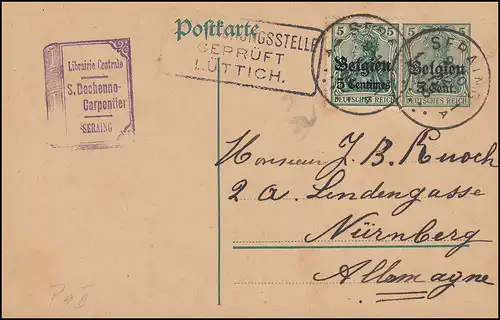 Postkarte
ÜNGSSTELLE
GEPRÜFT
LÜTTICH.
Librairie Centrale
S. Dechenne-
Carpentier
SERAING
5 5
Belgien
5 Centimes
DEUTSCHES REICH
5
Belgien
5 Cent.
DEUTSCHES REICH
SERAING
Monsieur J. B. Knoch
2 a. Lindengasse
Nürnberg
Allemagne